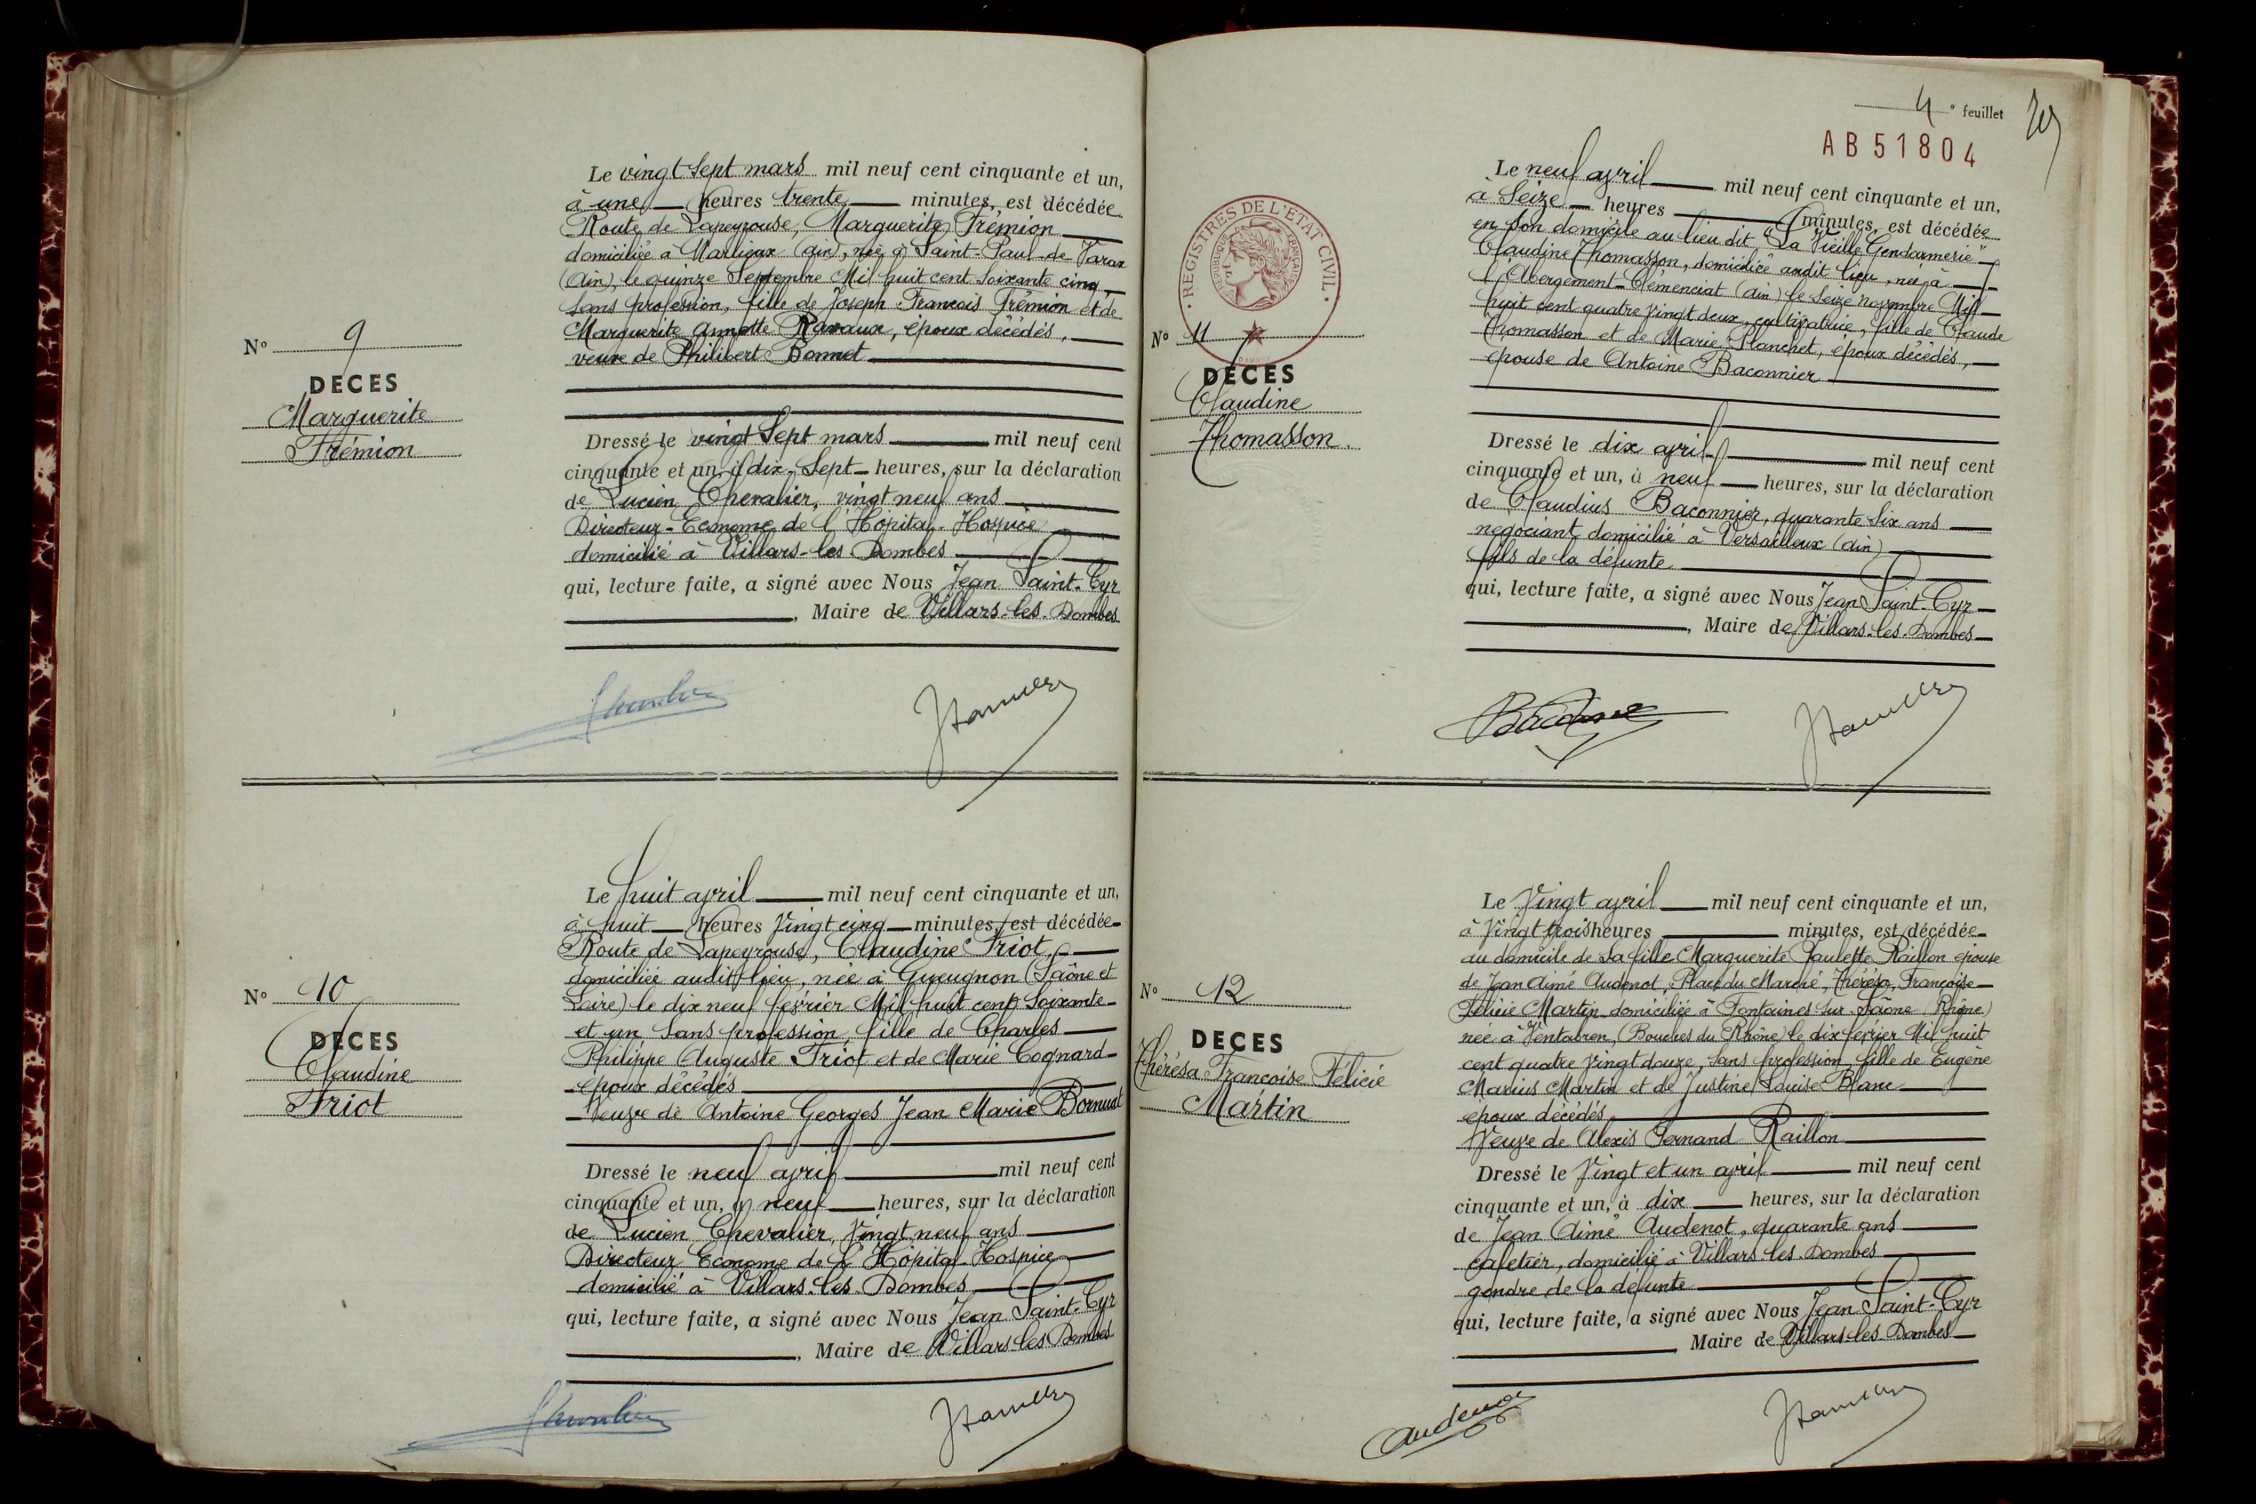 Le vingt sept mars mil neuf cent cinquante et un,
à une heures trente minutes, est décédée
Route de Lapeyrouse, Marguerite Frémion
domiciliée à Marlieux (ain), née à Saint-Paul-de-Varax
(Ain), le quinze Septembre Mil huit cent soixante cinq,
sans profession, fille de Joseph François Frémion et de
Marguerite Annette Ravaux, époux décédés,
veuve de Philibert Bonnet
N° 9
DECES
Marguerite
Frémion
Dressé le vingt sept mars mil neuf cent
cinquante et un, à dix-sept heures, sur la déclaration
de Lucien Chevalier, vingt neuf ans
Directeur-Econome de l'Hôpital-Hospice
domicilié à Villars-les Dombes
qui, lecture faite, a signé avec Nous Jean Saint-Cyr
, Maire de Villars-les-Dombes
Le huit avril mil neuf cent cinquante et un,
à huit heures vingt cinq minutes, est décédée
Route de Lapeyrouse, Claudine Friot,
domiciliée audit lieu, née à Gueugnon (Saône et
Loire) le dix neuf février Mil huit cent soixante
et un sans profession, fille de Charles
Philippe Auguste Friot et de Marie Cognard
époux décédés
Veuve de Antoine Georges Jean Marie
N° 10
DECES
Claudine
Friot
Dressé le neuf avril mil neuf cent
cinquante et un, à neuf heures, sur la déclaration
de Lucien Chevalier, vingt neuf ans
Directeur Econome de l'Hôpital-Hospice
domicilié à Villars-les-Dombes
qui, lecture faite, a signé avec Nous Jean Saint-Cyr
, Maire de Villars-les Dombes
4e feuillet
AB51804
REGISTRES DE L'ETAT CIVIL
REPUBLIQUE FRANÇAISE
Le neuf avril mil neuf cent cinquante et un,
à Seize heures minutes, est décédée
en son domicile au lieu dit "La Vieille Gendarmerie"
Claudine Thomasson, domiciliée audit lieu, née à
l'Abergement-Clémenciat (ain) le seize novembre Mil
huit cent quatre vingt deux, cultivatrice, fille de Claude
Thomasson et de Marie Planchet, époux décédés,
épouse de Antoine Baconnier
N° 11
DECES
Claudine
Thomasson
Dressé le dix avril mil neuf cent
cinquante et un, à neuf heures, sur la déclaration
de Claudius Baconnier, quarante six ans
négociant domicilié à Versailleux (ain)
fils de la défunte
qui, lecture faite, a signé avec Nous Jean Saint-Cyr
, Maire de Villars-les-Dombes
Le Vingt avril mil neuf cent cinquante et un,
à Vingt trois heures minutes, est décédée
au domicile de sa fille Marguerite Paulette Raillon épouse
de Jean Aimé Audenot, Place du Marché, Thérésa, Françoise
Félicie Martin domiciliée à Fontaines sur Saône (Rhône)
née à Ventabren, (Bouches du Rhône) le dix février Mil huit
cent quatre vingt douze, sans profession, fille de Eugène
Marius Martin et de Justine Louise Blanc
époux décédés,
Veuve de Alexis Fernand Raillon
N° 12
DECES
Thérésa Françoise Félicie
Martin
Dressé le Vingt et un avril mil neuf cent
cinquante et un, à dix heures, sur la déclaration
de Jean Aimé Audenot, quarante ans
cafetier, domicilié à Villars les Dombes
gendre de la défunte
qui, lecture faite, a signé avec Nous Jean Saint-Cyr
Maire de Villars-les Dombes
Audenot